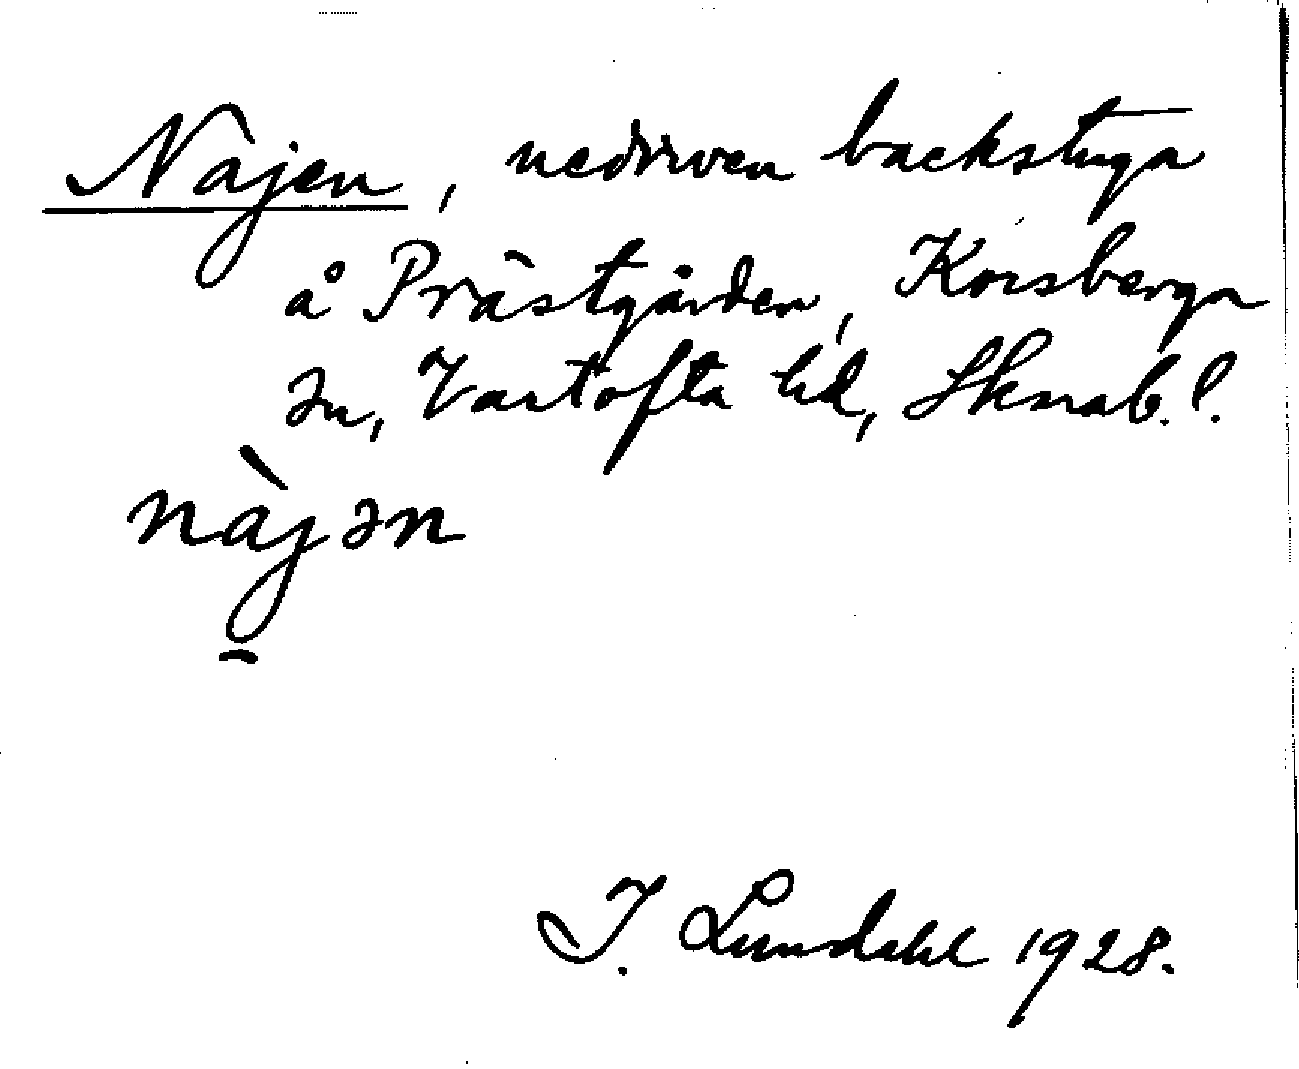 Najen, nedriven backstuga
å Prästgården, Korsberga
sn, Vartofta hd, Skarab. l.
nàjən
I. Lundahl 1928.